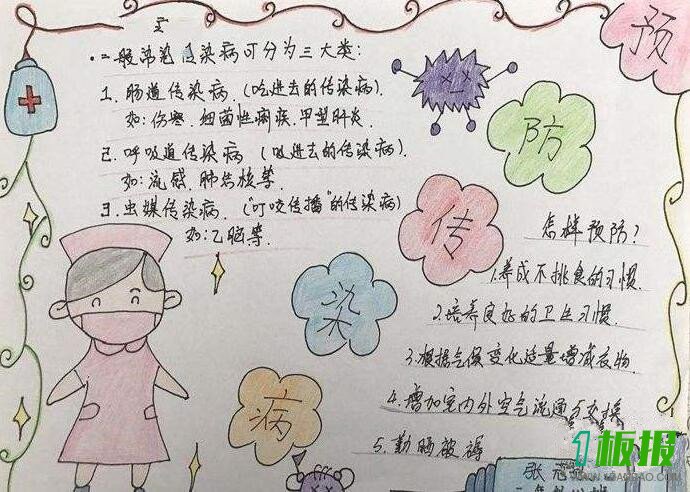 预
防
传
染
病
一般常见传染病可分为三大类:
1. 肠道传染病 (吃进去的传染病).
如: 伤寒. 细菌性痢疾. 甲型肝炎.
2. 呼吸道传染病 (吸进去的传染病).
如: 流感. 肺结核等.
3. 虫媒传染病. ("叮咬传播"的传染病)
如: 乙脑等.
怎样预防?
1. 养成不挑食的习惯.
2. 培养良好的卫生习惯.
3. 根据气候变化适量增减衣物.
4. 增加室内外空气流通与交换
5. 勤晒被褥
张志
1板报
WWW.YIBANBAO.COM